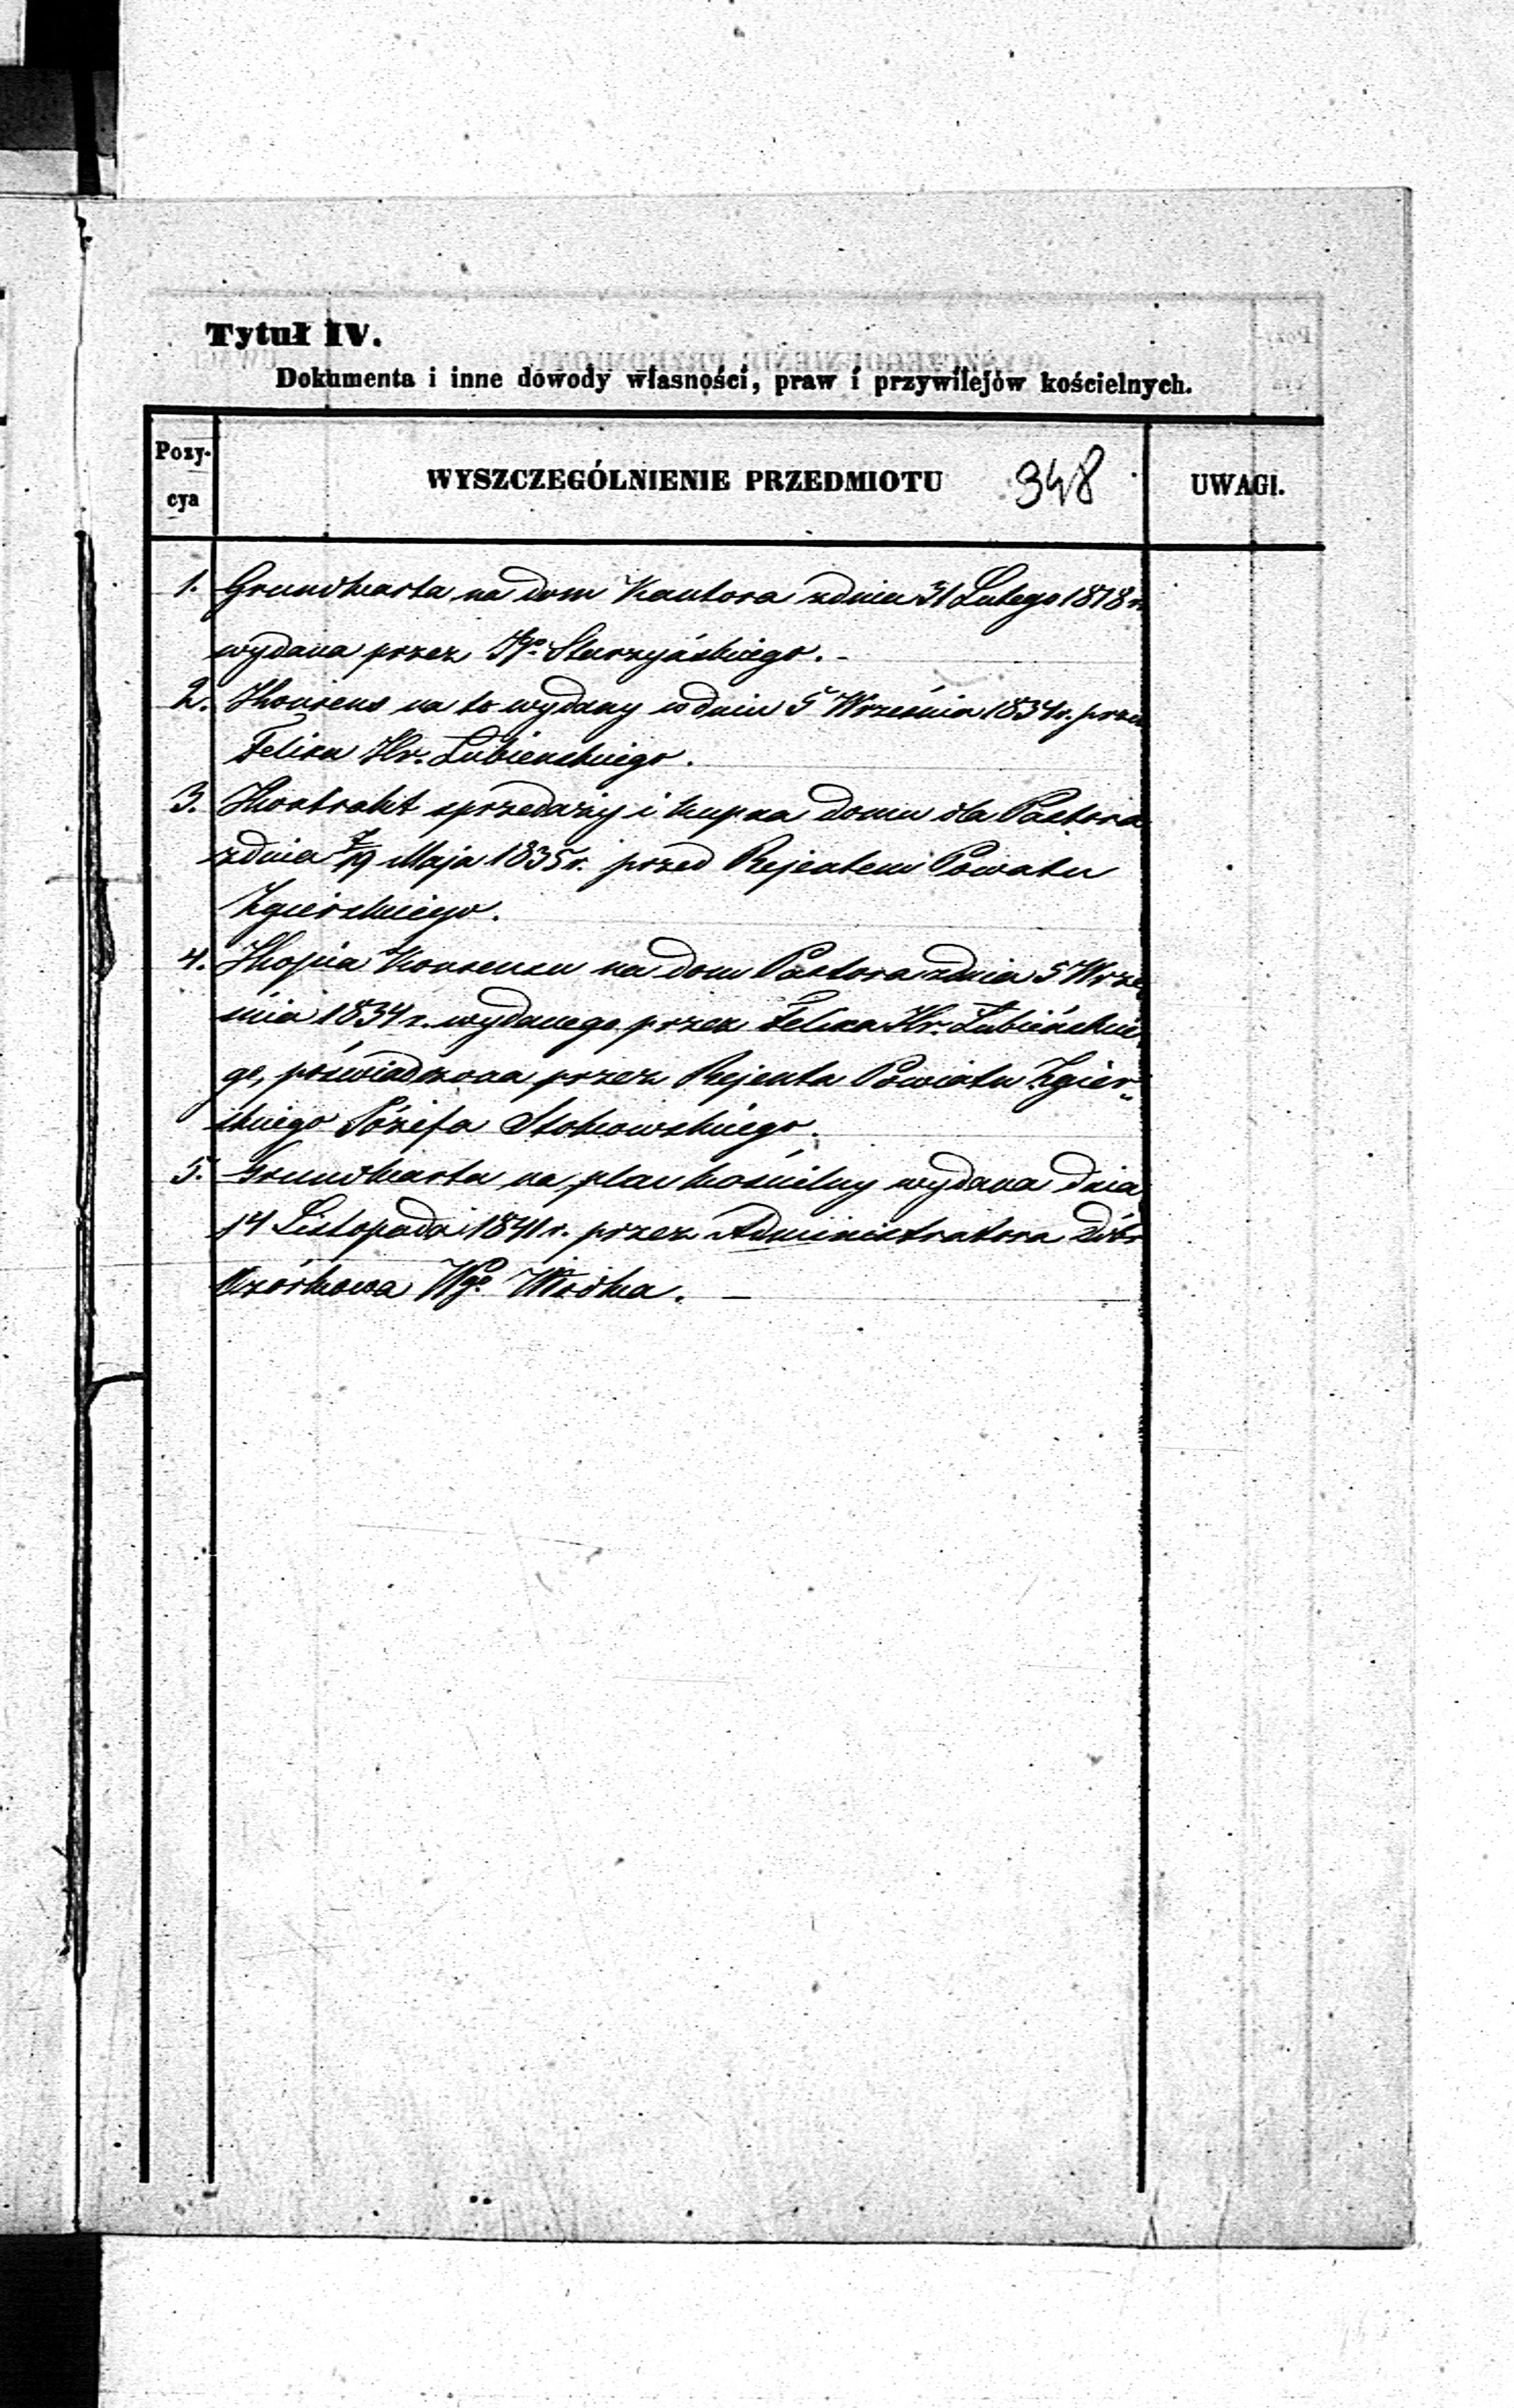 Tytuł IV.
Dokumenta i inne dowody własności, praw i przywilejów kościelnych.
Pozy-
cya
WYSZCZEGÓLNIENIE PRZEDMIOTU 348
UWAGI.
1. Grundkarta na dom Kantora z dnia 31 Lutego 1818 r.
wydana przez Starzyńskiego. -
2. Konsens na to wydany w dniu 5 Września 1834 r. przez
Felixa Hr. Lubienskiego.
3. Kontrakt sprzedaży i kupna domu dla Pastora
z dnia 7/19 Maja 1835 r. przed Rejentem Powiatu
Zgierskiego.
4. Kopia Konsensu na dom Pastora z dnia 5 Wrze
śnia 1834 r. wydanego przez Felixa Hr. Lubieńskie
go, poświadczona przez Rejenta Powiatu Zgier„
skiego Józefa Stokowskiego.
5. Grundkarta na plac kościelny wydana dnia
14 Listopada 1841 r. przez Administratora Dóbr
Ozorkowa Wgo. —